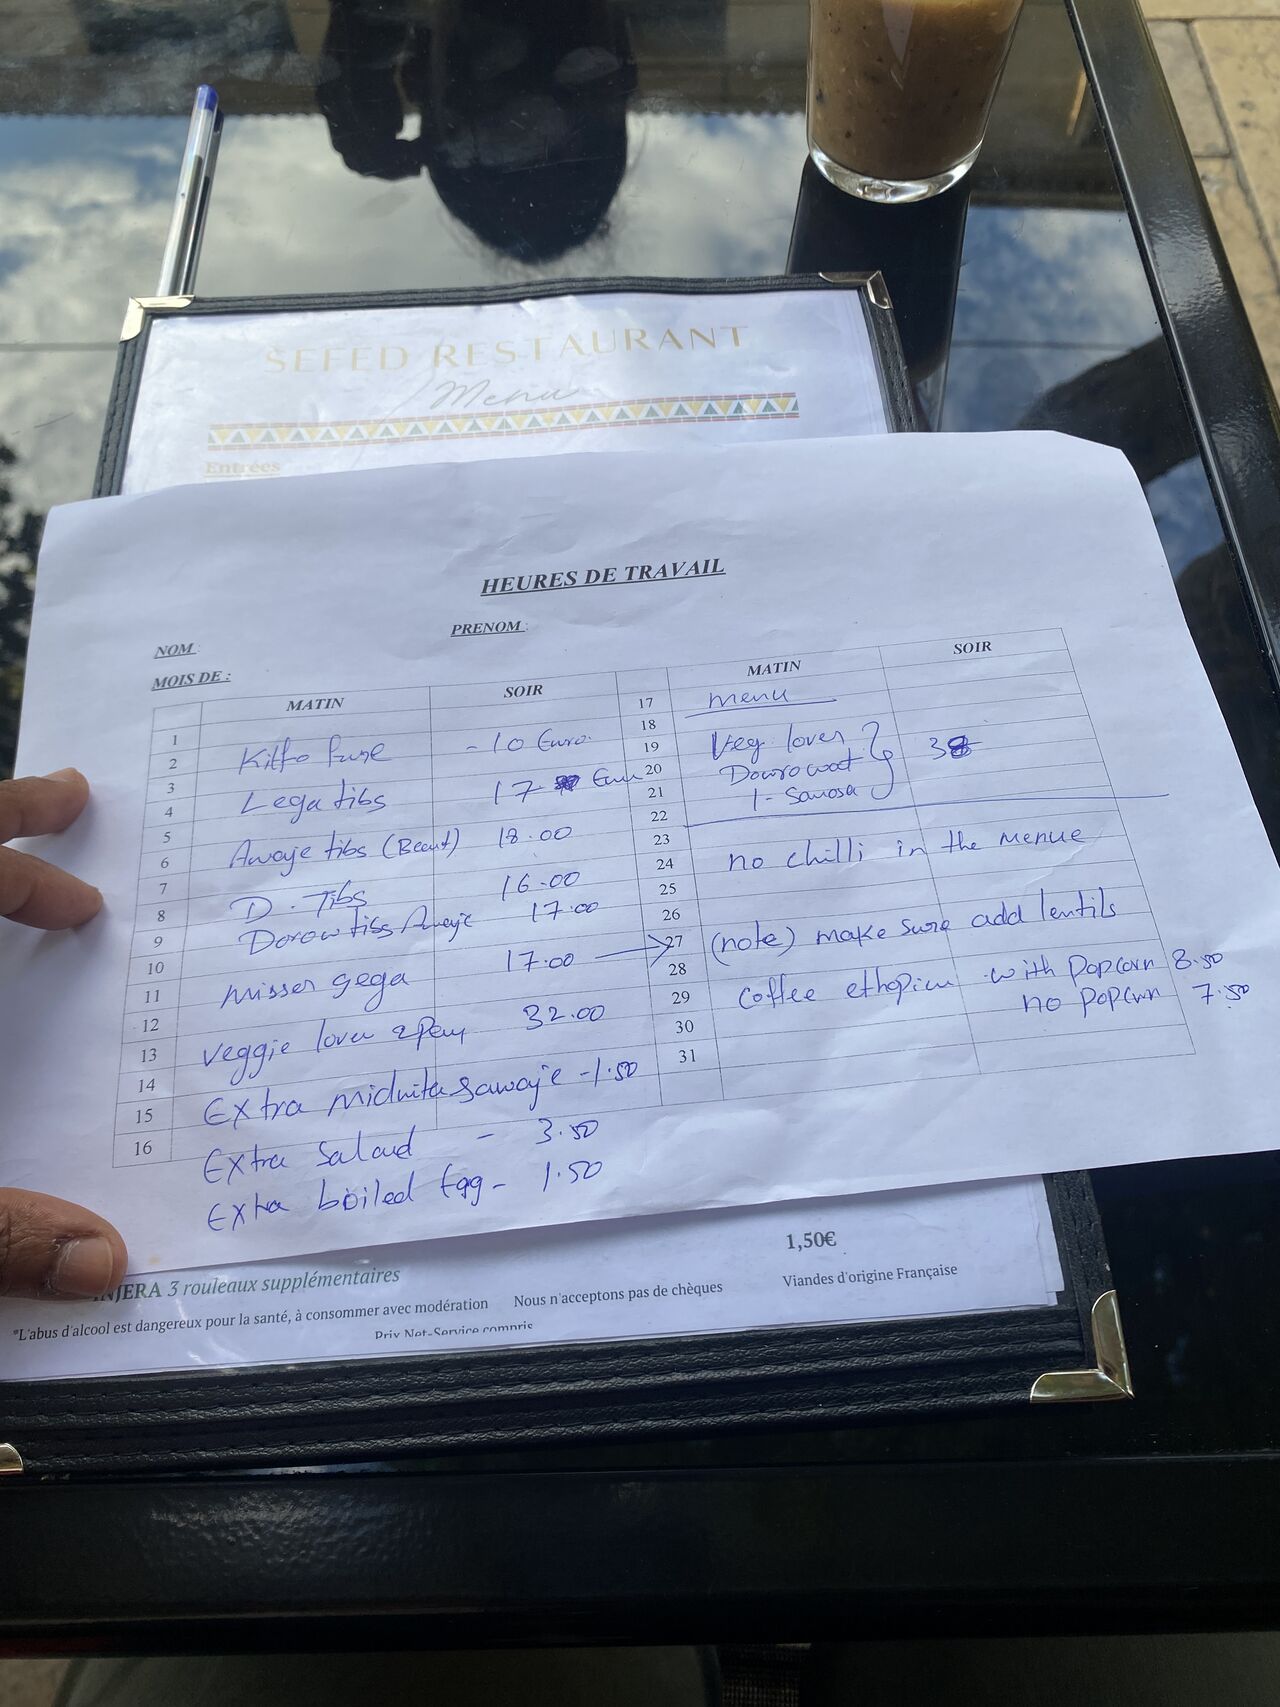 SEFED RESTAURANT
Menu
Entrées
HEURES DE TRAVAIL
NOM :
PRENOM :
MOIS DE :
MATIN SOIR
1
2 Kitfo - 10 Euro
3
4 Lega tibs 17
5
6 Awaje tibs 18.00
7
8 D. Tibs 16.00
9 Dorow tibs Awaje 17.00
10
11 misser gega 17.00
12
13 veggie lover 32.00
14
15 Extra sawaje - 1.50
16
Extra Salaud - 3.50
Extra boiled Egg - 1.50
MATIN SOIR
17 menu
18
19 Veg lover
20 Dowrowat 38
21 1 - Samosa
22
23
24 no chilli in the menue
25
26
27 (note) make sure add lentils
28
29 Coffee with popcorn 8.50
no popcorn 7.50
30
31
INJERA 3 rouleaux supplémentaires 1,50€
*L'abus d'alcool est dangereux pour la santé, à consommer avec modération Nous n'acceptons pas de chèques Viandes d'origine Française
Prix Net-Service compris